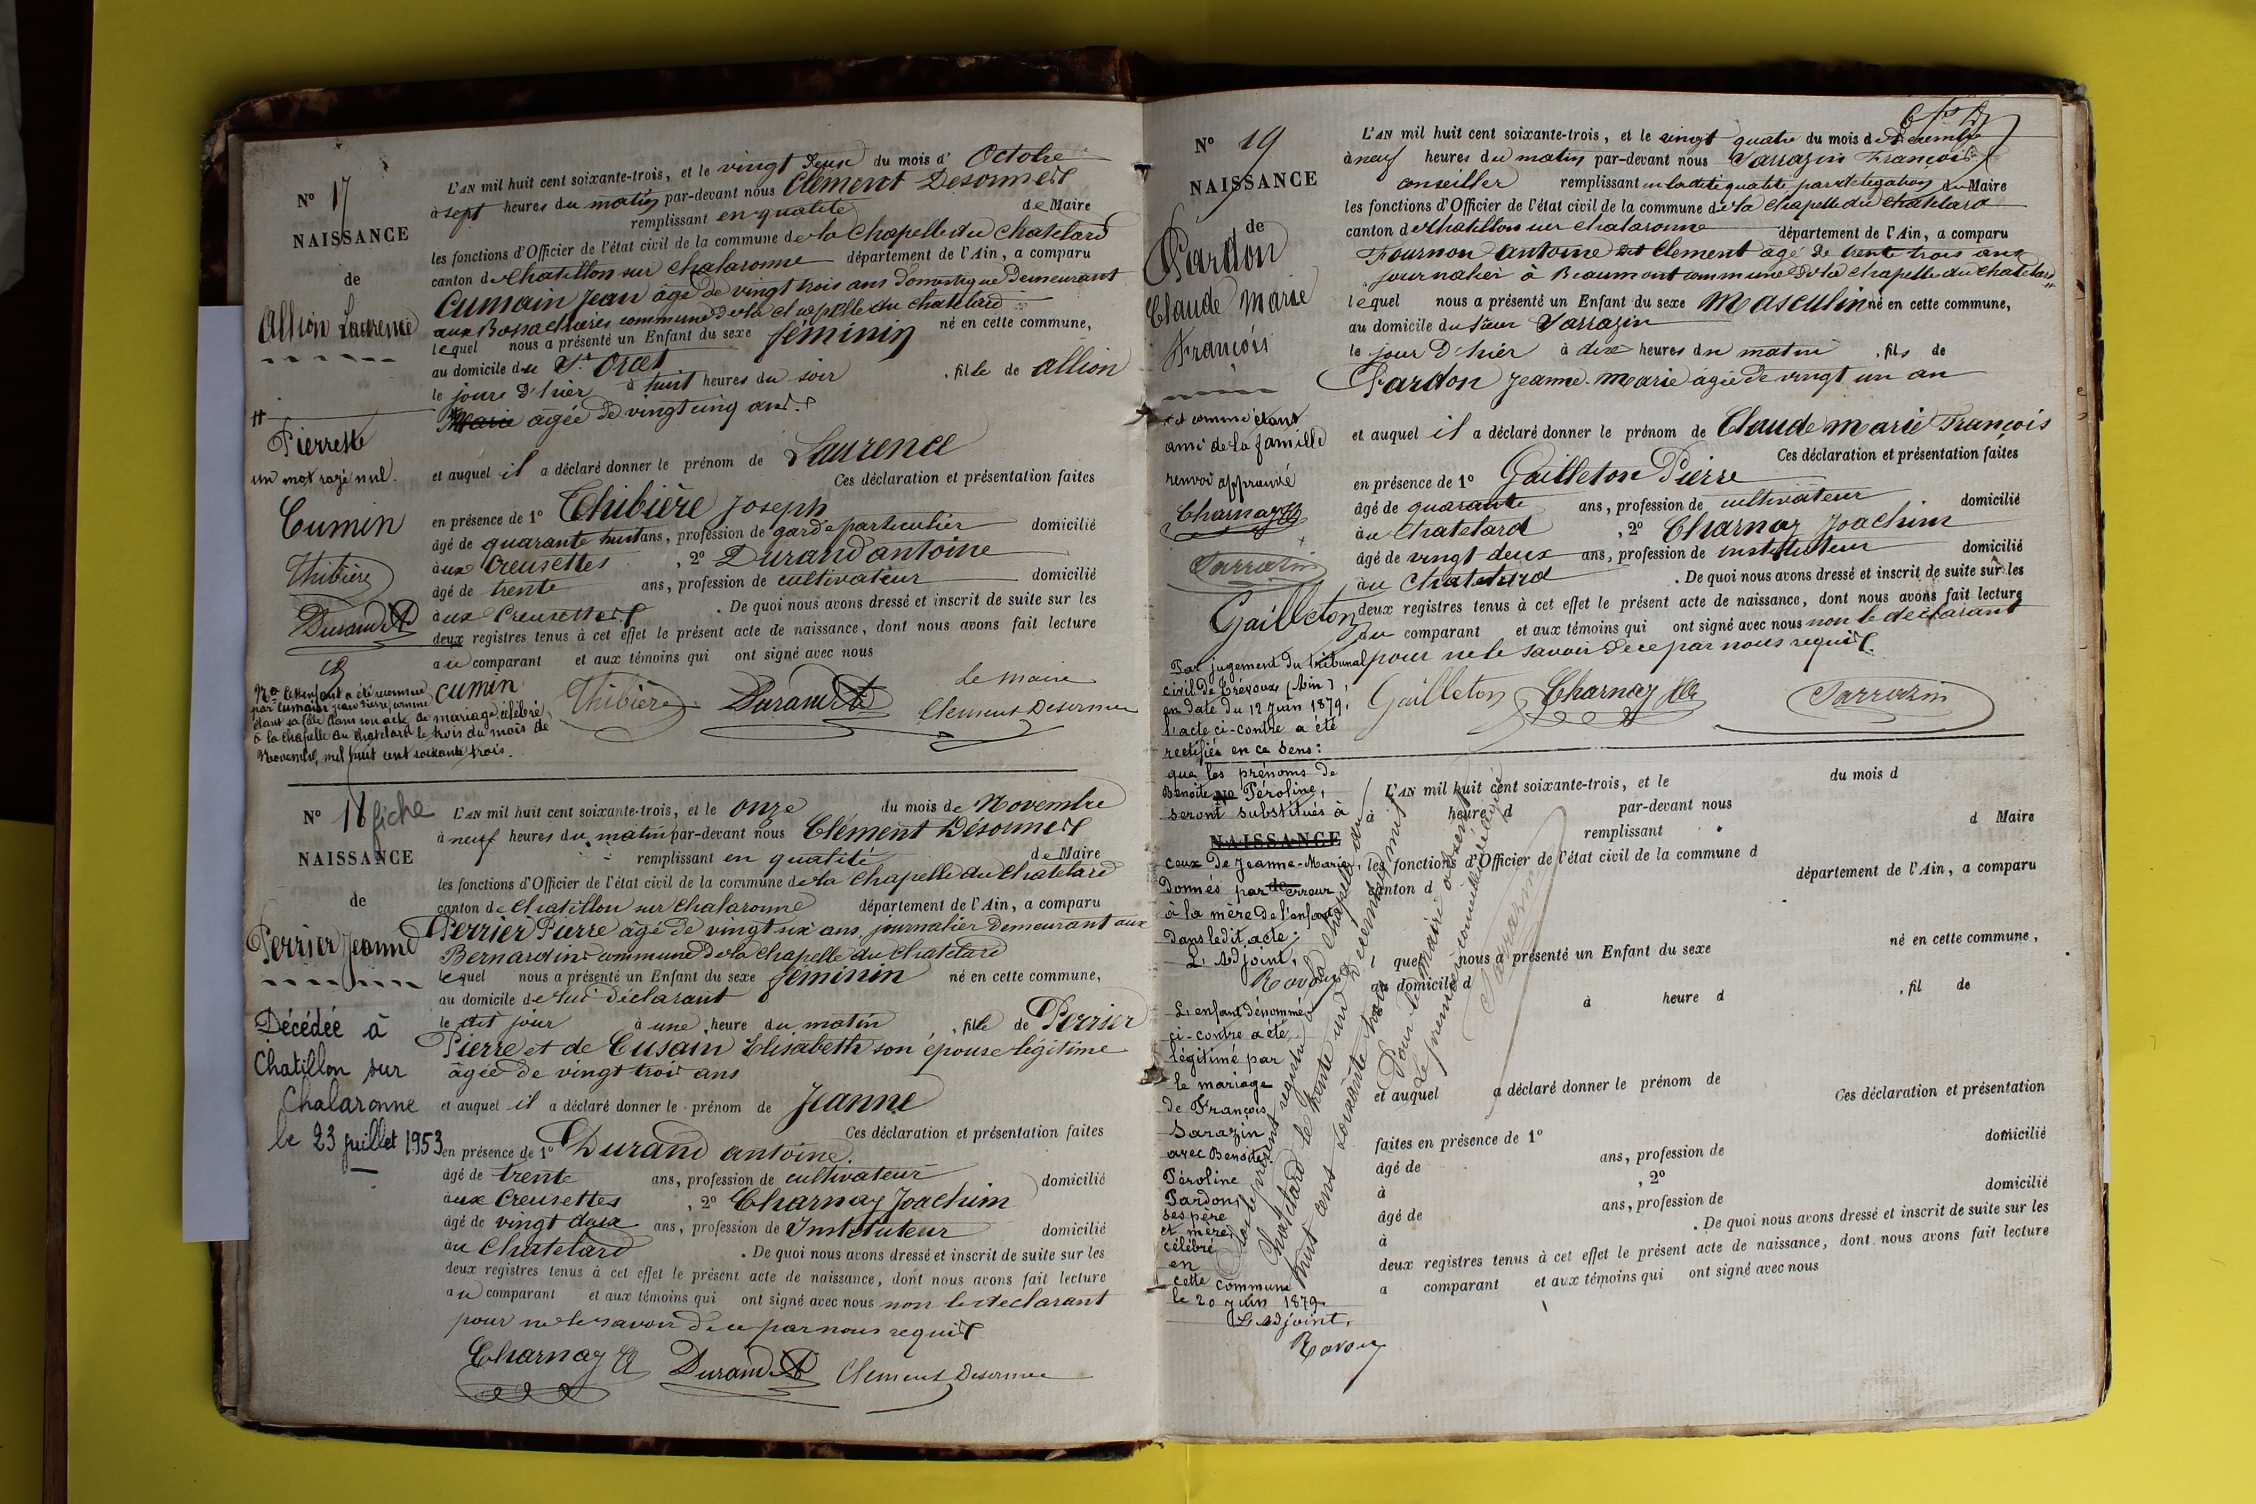 N° 17
NAISSANCE
de
Allion Laurence
Pierrette
un mot rayé nul.
Cumin
Thibière
Durand A
L'AN mil huit cent soixante-trois, et le vingt deux du mois d' Octobre
à sept heures du matin par-devant nous Clément Désormeil
remplissant en qualité de Maire
les fonctions d'Officier de l'état civil de la commune de la Chapelle du Chatelard
canton de Chatillon sur Chalaronne département de l'Ain, a comparu
Cumain Jean âgé de vingt trois ans domestique demeurant
aux commune de la Chapelle du Chatelard
lequel nous a présenté un Enfant du sexe féminin né en cette commune,
au domicile de
le jour d'hier à huit heures du soir , fille de Allion
Marie âgée de vingt cinq ans.
et auquel il a déclaré donner le prénom de Laurence
Ces déclaration et présentation faites
en présence de 1° Thibière Joseph
âgé de quarante huit ans, profession de garde particulier domicilié
aux Creusettes , 2° Durand antoine
âgé de trente ans, profession de cultivateur domicilié
aux Creusettes . De quoi nous avons dressé et inscrit de suite sur les
deux registres tenus à cet effet le présent acte de naissance, dont nous avons fait lecture
au comparant et aux témoins qui ont signé avec nous
le Maire
cumin Thibière Durand A Clément Desormeil
Na Cet enfant a été reconnu
par Cumain Jean Pierre, comme
étant sa fille dans son acte de mariage célébré
à la Chapelle du Chatelard le trois du mois de
Novembre, mil huit cent soixante trois.
N° 18 fiche
NAISSANCE
de
Perrier Jeanne
Décédée à
Chatillon sur
Chalaronne
le 23 juillet 1953
L'AN mil huit cent soixante-trois, et le onze du mois de Novembre
à neuf heures du matin par-devant nous Clément Désormeil
remplissant en qualité de Maire
les fonctions d'Officier de l'état civil de la commune de la Chapelle du Chatelard
canton de Chatillon sur Chalaronne département de l'Ain, a comparu
Perrier Pierre âgé de vingt six ans, journalier demeurant aux
Bernardins commune de la Chapelle du Chatelard
lequel nous a présenté un Enfant du sexe féminin né en cette commune,
au domicile de lui déclarant
le dit jour à une heure du matin , fille de Perrier
Pierre et de Cusain Elisabeth son épouse légitime
âgée de vingt trois ans
et auquel il a déclaré donner le prénom de Jeanne
Ces déclaration et présentation faites
en présence de 1° Durand antoine.
âgé de trente ans, profession de cultivateur domicilié
aux Creusettes , 2° Charnay Joachim
âgé de vingt deux ans, profession de Instituteur domicilié
au Chatelard . De quoi nous avons dressé et inscrit de suite sur les
deux registres tenus à cet effet le présent acte de naissance, dont nous avons fait lecture
au comparant et aux témoins qui ont signé avec nous non le déclarant
pour ne le savoir de ce par nous requis
Charnay Durand A Clément Desormeil
N° 19
NAISSANCE
de
Pardon
Claude Marie
François
et comme étant
ami de la famille
renvoi approuvé
Charnay
Sarrazin
Gailleton
L'AN mil huit cent soixante-trois, et le vingt quatre du mois de Décembre
à neuf heures du matin par-devant nous Sarrazin François
conseiller remplissant en la dite qualité par délégation du Maire
les fonctions d'Officier de l'état civil de la commune de la Chapelle du Chatelard
canton de Chatillon sur Chalaronne département de l'Ain, a comparu
Fournon antoine dit Clément âgé de trente trois ans
journalier à Beaumont commune de la Chapelle du Chatelard
lequel nous a présenté un Enfant du sexe Masculin né en cette commune,
au domicile du sieur Sarrazin
le jour d'hier à dix heures du matin , fils de
Pardon Jeanne-Marie âgée de vingt un an
et auquel il a déclaré donner le prénom de Claude Marie François
Ces déclaration et présentation faites
en présence de 1° Gailleton Pierre
âgé de quarante ans, profession de cultivateur domicilié
au Chatelard , 2° Charnay Joachim
âgé de vingt deux ans, profession de instituteur domicilié
au Chatelard . De quoi nous avons dressé et inscrit de suite sur les
deux registres tenus à cet effet le présent acte de naissance, dont nous avons fait lecture
au comparant et aux témoins qui ont signé avec nous non le déclarant
pour ne le savoir de ce par nous requis.
Gailleton Charnay Sarrazin
Par jugement du tribunal
civil de Trévoux (Ain),
en date du 12 Juin 1879,
l'acte ci-contre a été
rectifié en ce sens:
que les prénoms de
Benoite Péroline,
seront substitués à
N°
NAISSANCE
ceux de Jeanne-Marie,
donnés par de erreur
à la mère de l'enfant
dans ledit acte.
L'Adjoint,
L'enfant dénommé
ci-contre a été
légitimé par
le mariage
de François
Sarazin
avec Benoite
Péroline
Pardon,
ses père
et mère,
célébré
en
cette commune
le 20 Juin 1879.
L'Adjoint,
L'AN mil huit cent soixante-trois, et le du mois d
à heure d par-devant nous
remplissant d Maire
les fonctions d'Officier de l'état civil de la commune d
canton d département de l'Ain, a comparu
quel nous a présenté un Enfant du sexe né en cette commune,
au domicile d
à heure d , fil de
et auquel a déclaré donner le prénom de
Ces déclaration et présentation
faites en présence de 1°
âgé de ans, profession de domicilié
à , 2°
âgé de ans, profession de domicilié
à . De quoi nous avons dressé et inscrit de suite sur les
deux registres tenus à cet effet le présent acte de naissance, dont nous avons fait lecture
a comparant et aux témoins qui ont signé avec nous
Clos le présent registre à la Chapelle du
Chatelard le trente un décembre mil
huit cent soixante trois
Pour le maire absent
Le premier conseiller délégué
Sarrazin